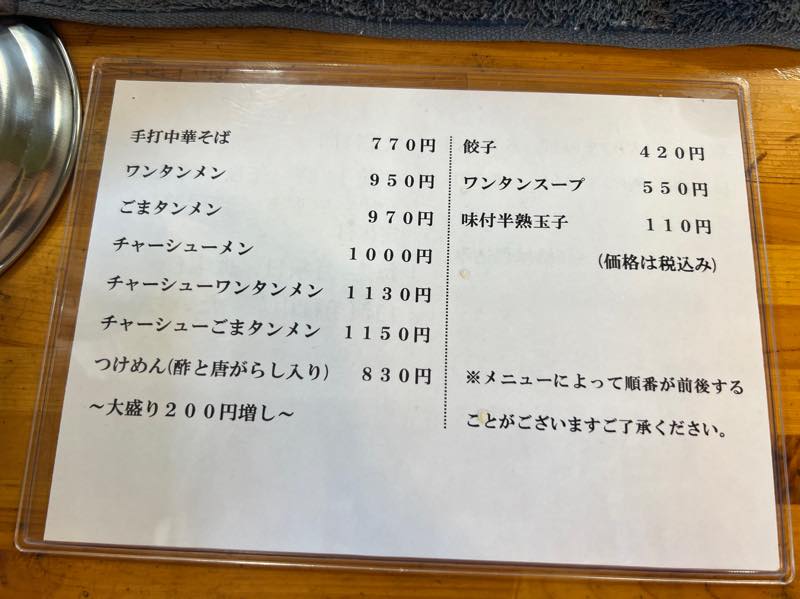 手打中華そば　７７０円
ワンタンメン　９５０円
ごまタンメン　９７０円
チャーシューメン　１０００円
チャーシューワンタンメン　１１３０円
チャーシューごまタンメン　１１５０円
つけめん(酢と唐がらし入り)　８３０円
～大盛り２００円増し～
餃子　４２０円
ワンタンスープ　５５０円
味付半熟玉子　１１０円
(価格は税込み)
※メニューによって順番が前後する
ことがございますご了承ください。